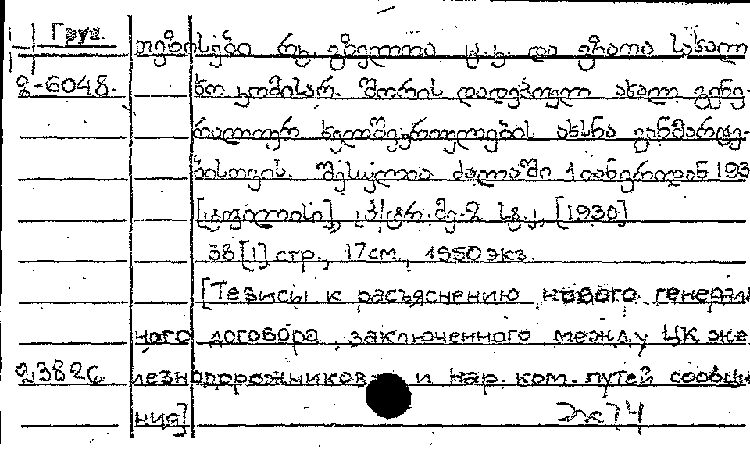 Груз.
თეზისები რკ. გზელთა ც.კ. და გზათა სახალ
2-6048. ხო კომისარ. შორის დადებულ ახალ გენე-
რალურ ხელშეკრულების ახსნა განმარტე-
ბისთვის. შესულია ძალაში 1 იანვრიდან 193
[ტფილისი], პ/ტრ. მე-2 სტ., [1930]
38 [1] стр., 17 см., 1950 экз.
[Тезисы к разъяснению нового генераль
ного договора, заключенного между ЦК же
23826 лезнодорожников и нар. ком. путей сообще
ния]